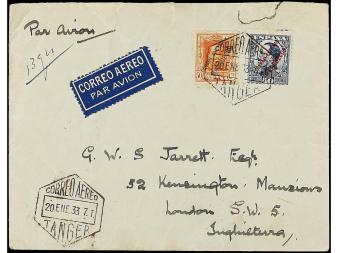 Par Avion
CORREO AEREO
PAR AVION
CORREO AEREO
20 ENE. 33
TANGER
ESPAÑA
G. W. S Jarrett. Esqr.
52 Kensington Mansions
London S. W. 5.
Inghleterra,
CORREO AEREO
20 ENE. 33 7. T.
TANGER